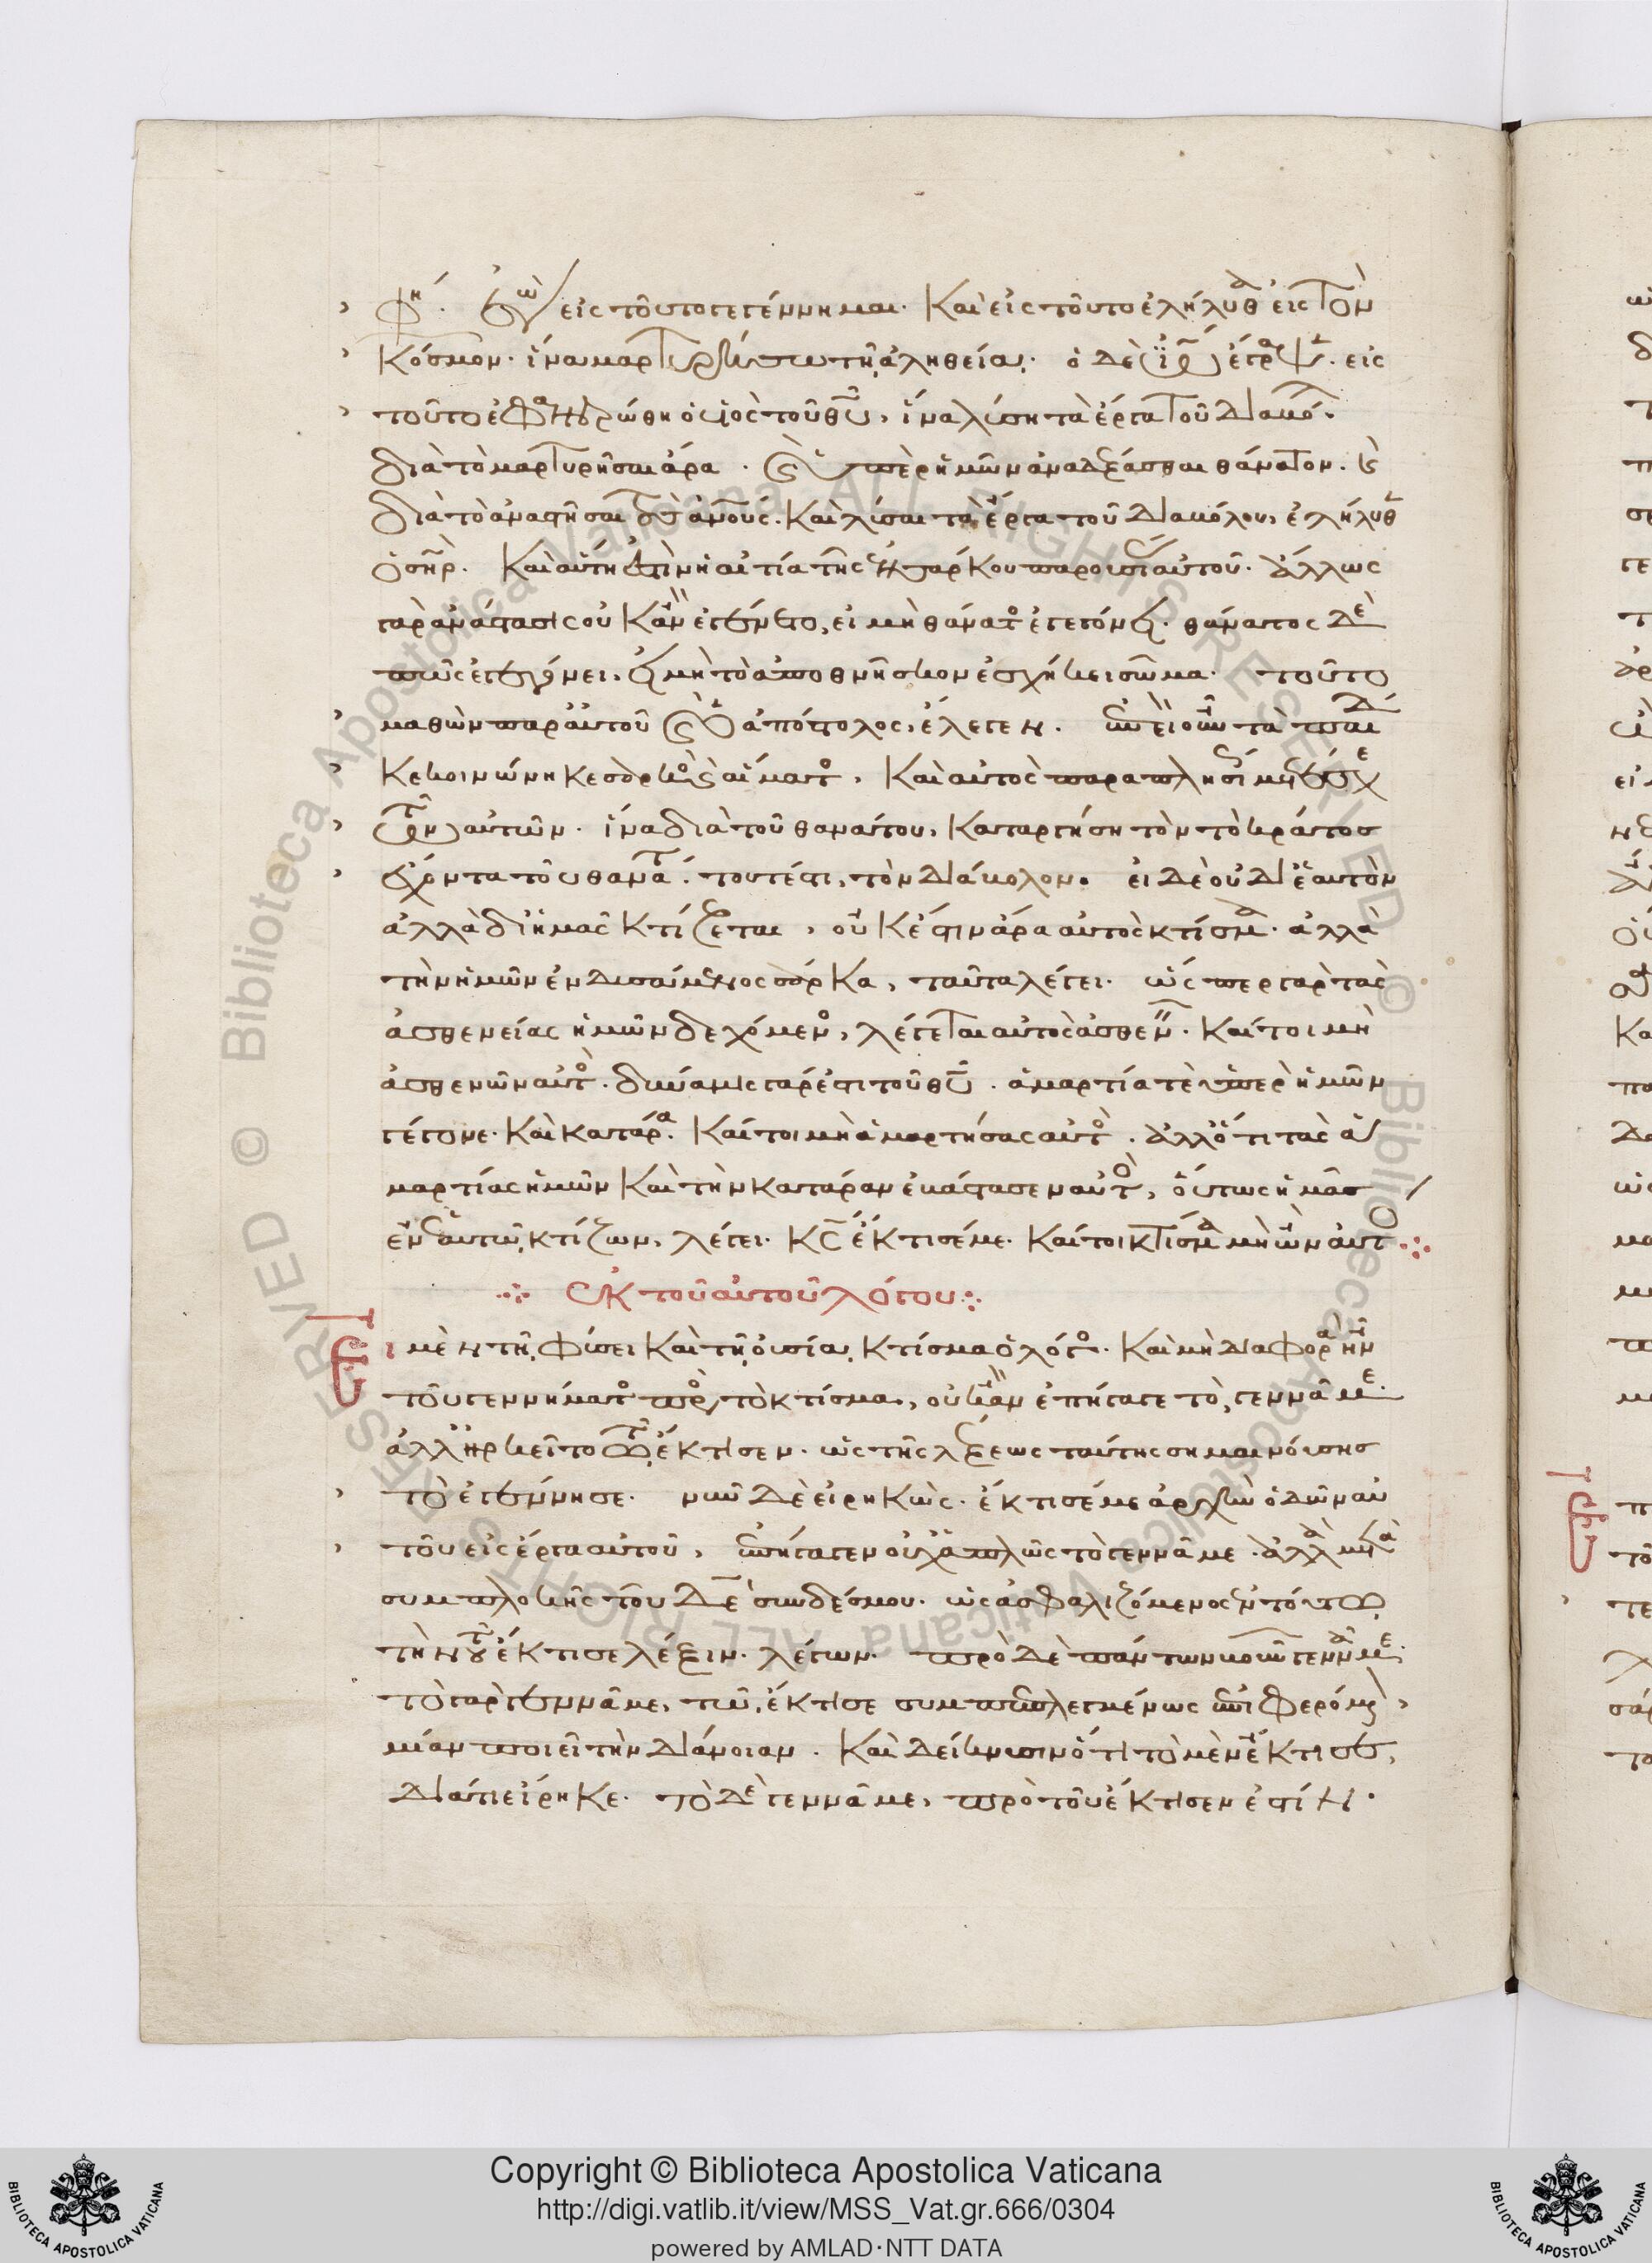 φη· ἐγὼ εἰς τοῦτο γεγέννημαι· καὶ εἰς τοῦτο ἐλήλυθα εἰς τὸν
κόσμον· ἵνα μαρτυρήσω τῇ ἀληθείᾳ· ὁ δὲ ἰω ἔγραψεν· εἰς
τοῦτο ἐφανερώθη ὁ υἱὸς τοῦ θυ, ἵνα λύση τὰ ἔργα τοῦ διαβό·
διὰ τὸ μαρτυρῆσαι ἄρα· καὶ ὑπὲρ ἡμῶν ἀναδέξασθαι θάνατον· καὶ
διὰ τὸ ἀναστῆσαι τοὺς ἀνους· καὶ λῦσαι τὰ ἔργα τοῦ διαβόλου, ἐλήλυθεν
ὁ σηρ· καὶ αὕτη ἐστὶν ἡ αἰτία τῆς ἐνσάρκου παρουσίας αὐτοῦ· ἄλλως
γὰρ ἀνάστασις οὐκ ἂν ἐγένετο, εἰ μὴ θάνατος ἐγεγόνει· θάνατος δὲ
πῶς ἐγεγόνει, εἰ μὴ τὸ ἀποθνῆσκον ἐσχήκει σῶμα· τοῦτο
μαθὼν παρ' αὐτοῦ καὶ ὁ ἀπόστολος, ἔλεγεν· ἐπεὶ οὖν τὰ παιδία
κεκοινώνηκε σαρκὸς καὶ αἵματος, καὶ αὐτὸς παραπλησίως μετέσχε
τῶν αὐτῶν· ἵνα διὰ τοῦ θανάτου, καταργήση τὸν τὸ κράτος
ἔχοντα τοῦ θανάτου· τουτέστι, τὸν διάβολον· εἰ δὲ οὐ δι' ἑαυτὸν
ἀλλὰ δι' ἡμᾶς κτίζεται, οὐκ ἔστιν ἄρα αὐτὸς κτίσμα· ἀλλὰ
τὴν ἡμῶν ἐνδυσάμενος σάρκα, ταῦτα λέγει· ὥσπερ γὰρ τὰς
ἀσθενείας ἡμῶν δεχόμενος, λέγεται αὐτὸς ἀσθενεῖν· καίτοι μὴ
ἀσθενῶν αὐτός· δύναμις γάρ ἐστι τοῦ θυ· ἁμαρτία τε ὑπὲρ ἡμῶν
γέγονε· καὶ κατάρα· καίτοι μὴ ἁμαρτήσας αὐτός· ἀλλ' ὅτι τὰς ἁ
μαρτίας ἡμῶν καὶ τὴν κατάραν ἐβάστασεν αὐτός, οὕτως ἡμᾶς
ἐν ἑαυτῷ κτίζων, λέγει· κς ἔκτισέ με· καίτοι κτίσμα μὴ ὢν αὐτός
ἐκ τοῦ αὐτοῦ λόγου
Εἰ μὲν τῇ φύσει καὶ τῇ οὐσίᾳ κτίσμα ὁ λόγος· καὶ μὴ διαφορὰ ἦν
τοῦ γεννήματος πρὸς τὸ κτίσμα, οὐκ ἂν ἐπήγαγε τὸ, γεννᾶ με·
ἀλλ' ἠρκεῖτο τῷ, ἔκτισεν· ὡς τῆς λέξεως ταύτης σημαινούσης
τὸ ἐγέννησε· νῦν δὲ εἰρηκὼς· ἔκτισέ με ἀρχὴν ὁδῶν αὐ
τοῦ εἰς ἔργα αὐτοῦ, ἐπήγαγεν οὐχ' ἁπλῶς τὸ γεννᾶ με· ἀλλὰ μετὰ
συμπλοκῆς τοῦ δὲ συνδέσμου· ὡς ἀσφαλιζόμενος ἐν τούτῳ
τὴν τοῦ ἔκτισε λέξιν· λέγων· πρὸ δὲ πάντων βουνῶν γεννᾶ με·
τὸ γὰρ γεννᾶ με, τῷ, ἔκτισε συμπεπλεγμένως ἐπιφερόμενον,
μίαν ποιεῖ τὴν διάνοιαν· καὶ δείκνυσιν ὅτι τὸ μὲν ἔκτισε,
διά τι εἴρηκε· τὸ δὲ γεννᾶ με, πρὸ τοῦ ἔκτισεν ἐστίν·
Copyright © Biblioteca Apostolica Vaticana
http://digi.vatlib.it/view/MSS_Vat.gr.666/0304
powered by AMLAD·NTT DATA